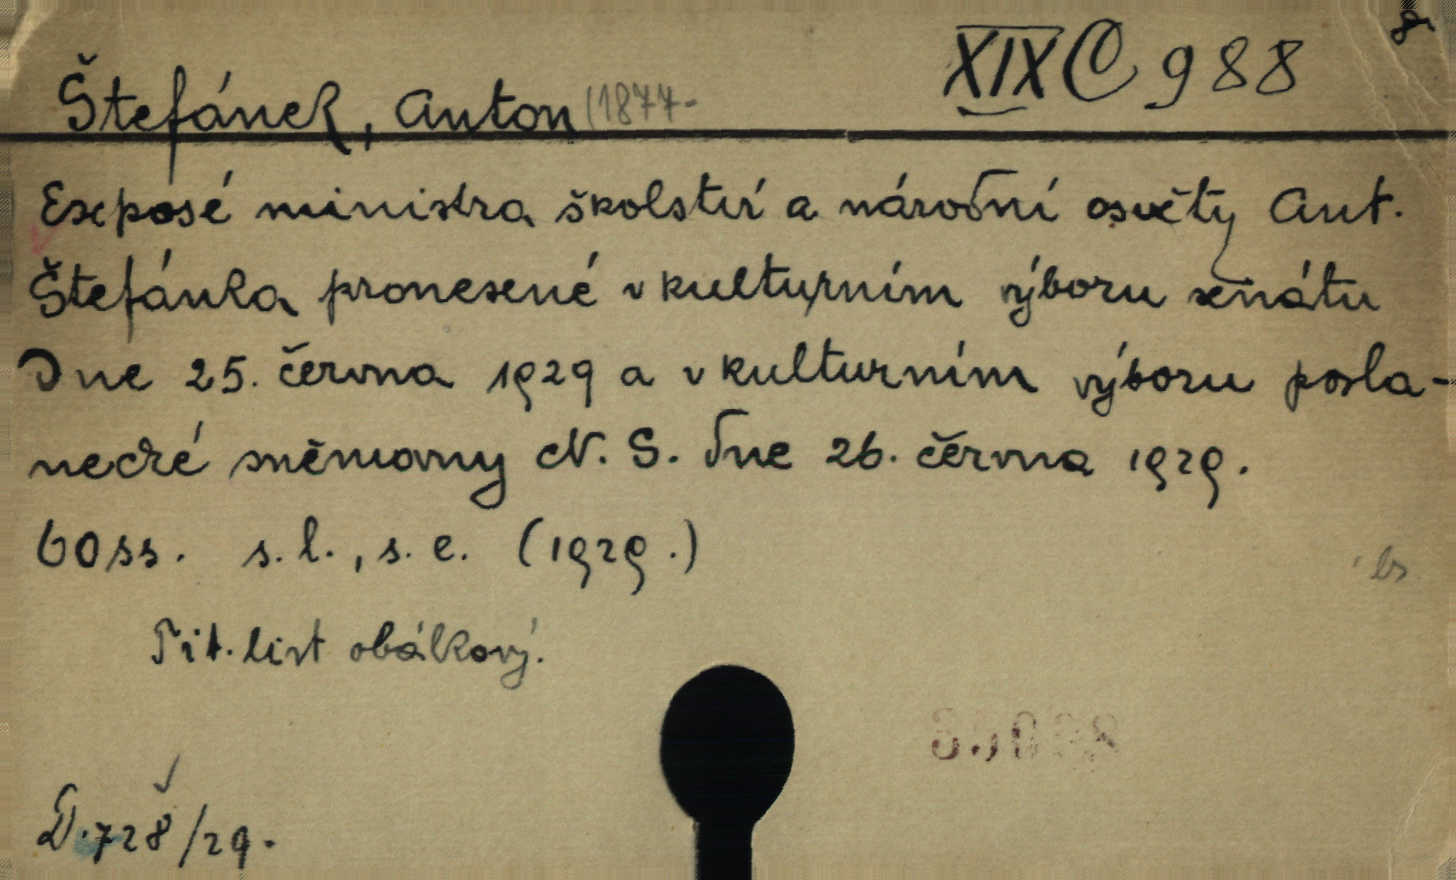 XIX C 988
8
Štefánek, Anton (1877-
Exposé ministra školství a národní osvěty Ant.
Štefánka pronesené v kulturním výboru senátu
dne 25. června 1929 a v kulturním výboru posla-
necké sněmovny N. S. dne 26. června 1929.
60 ss. s. l., s. e. (1929.)
bs
Tit. list obálkový.
D. 728/29.